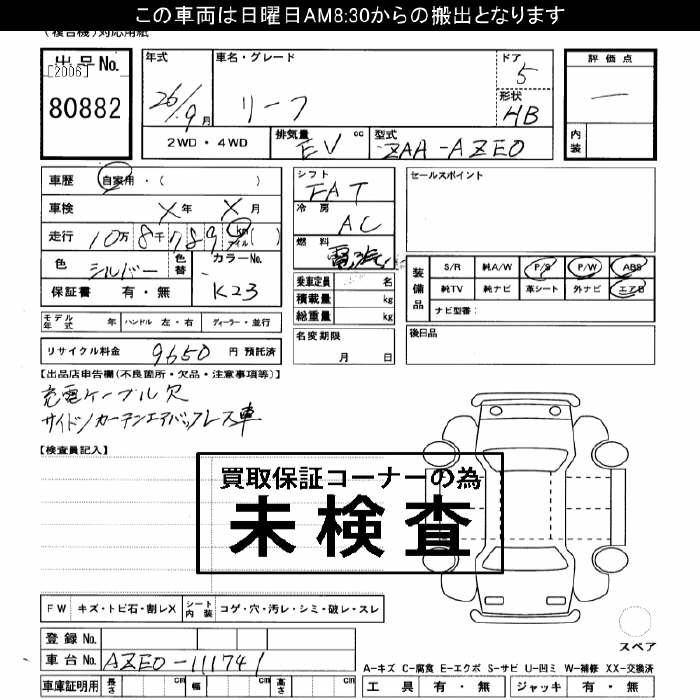 この車両は日曜日AM8:30からの搬出となります
(複合機)対応用紙
出品No.
[2006]
80882
年式
26/9月
車名・グレード
リーフ
ドア
5
形状
HB
2WD・4WD
排気量
EV
cc
型式
ZAA-AZE0
評価点
―
内装
車歴 自家用・( )
車検 X年 X月
走行 10万8千789 km マイル( )
色 シルバー 色替
カラーNo.
K23
保証書 有・無
モデル年式 年 ハンドル 左・右 ディーラー・並行
リサイクル料金 9650 円 預託済
シフト
FAT
冷房
AC
燃料
電気
乗車定員 名
積載量 kg
総重量 kg
名変期限
月 日
セールスポイント
装備品
S/R 純A/W P/S P/W ABS
純TV 純ナビ 革シート 外ナビ エアB
ナビ型番:
後日品
【出品店申告欄(不良箇所・欠品・注意事項等)】
充電ケーブル欠
サイド/カーテンエアバックレス車
【検査員記入】
買取保証コーナーの為
未検査
FW キズ・トビ石・割レX シート内装 コゲ・穴・汚レ・シミ・破レ・スレ
登録No.
車台No. AZE0-111741
車庫証明用 長さ cm 幅 cm 高さ cm
スペア
A-キズ C-腐食 E-エクボ S-サビ U-凹ミ W-補修 XX-交換済
工具 有・無 ジャッキ 有・無